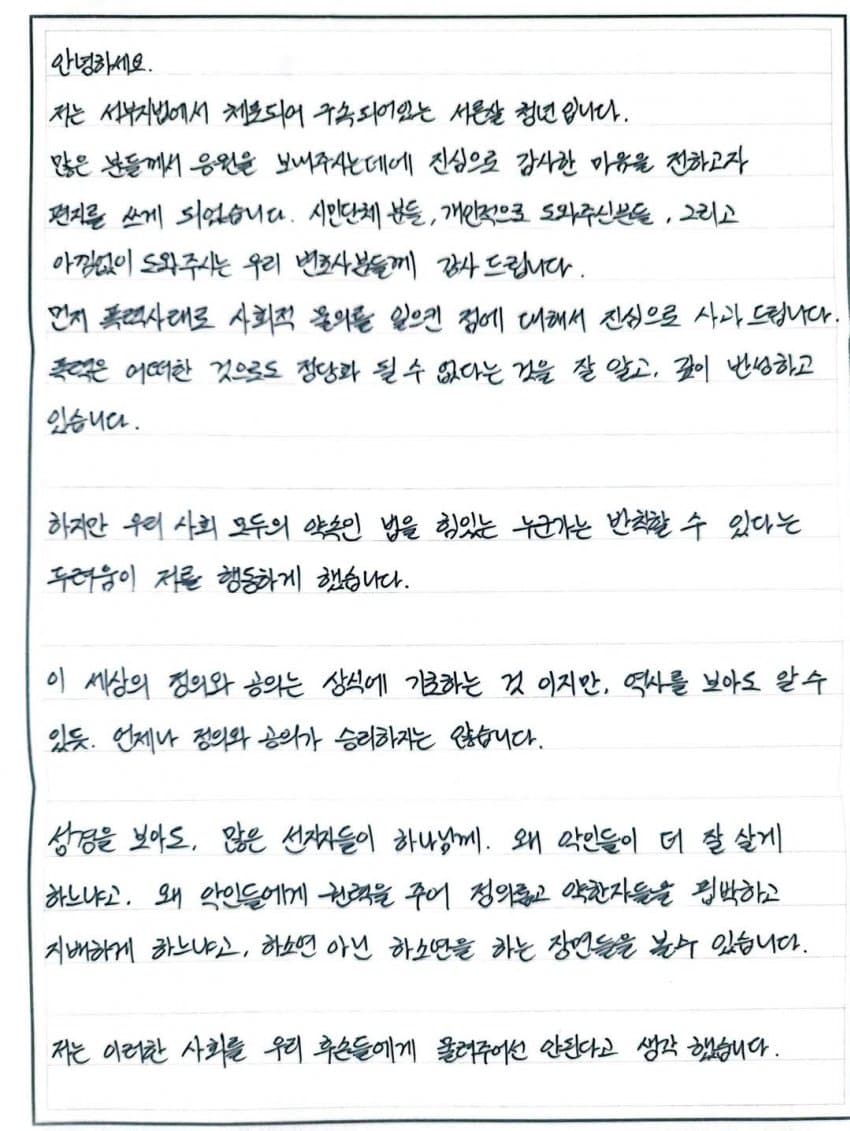 안녕하세요.
저는 서부지법에서 체포되어 구속되어있는 서른살 청년입니다.
많은 분들께서 응원을 보내주시는데에 진심으로 감사한 마음을 전하고자
편지를 쓰게 되었습니다. 시민단체 분들, 개인적으로 도와주신분들, 그리고
아낌없이 도와주시는 우리 변호사분들께 감사 드립니다.
먼저 폭력사태로 사회적 물의를 일으킨 점에 대해서 진심으로 사과 드립니다.
폭력은 어떠한 것으로도 정당화 될 수 없다는 것을 잘 알고, 깊이 반성하고
있습니다.
하지만 우리 사회 모두의 약속인 법을 힘있는 누군가는 반칙할 수 있다는
두려움이 저를 행동하게 했습니다.
이 세상의 정의와 공의는 상식에 기초하는 것 이지만, 역사를 보아도 알 수
있듯. 언제나 정의와 공의가 승리하지는 않습니다.
성경을 보아도, 많은 선지자들이 하나님께. 왜 악인들이 더 잘 살게
하느냐고. 왜 악인들에게 권력을 주어 정의롭고 약한자들을 핍박하고
지배하게 하느냐고, 하소연 아닌 하소연을 하는 장면들을 볼수 있습니다.
저는 이러한 사회를 우리 후손들에게 물려주어선 안된다고 생각 했습니다.